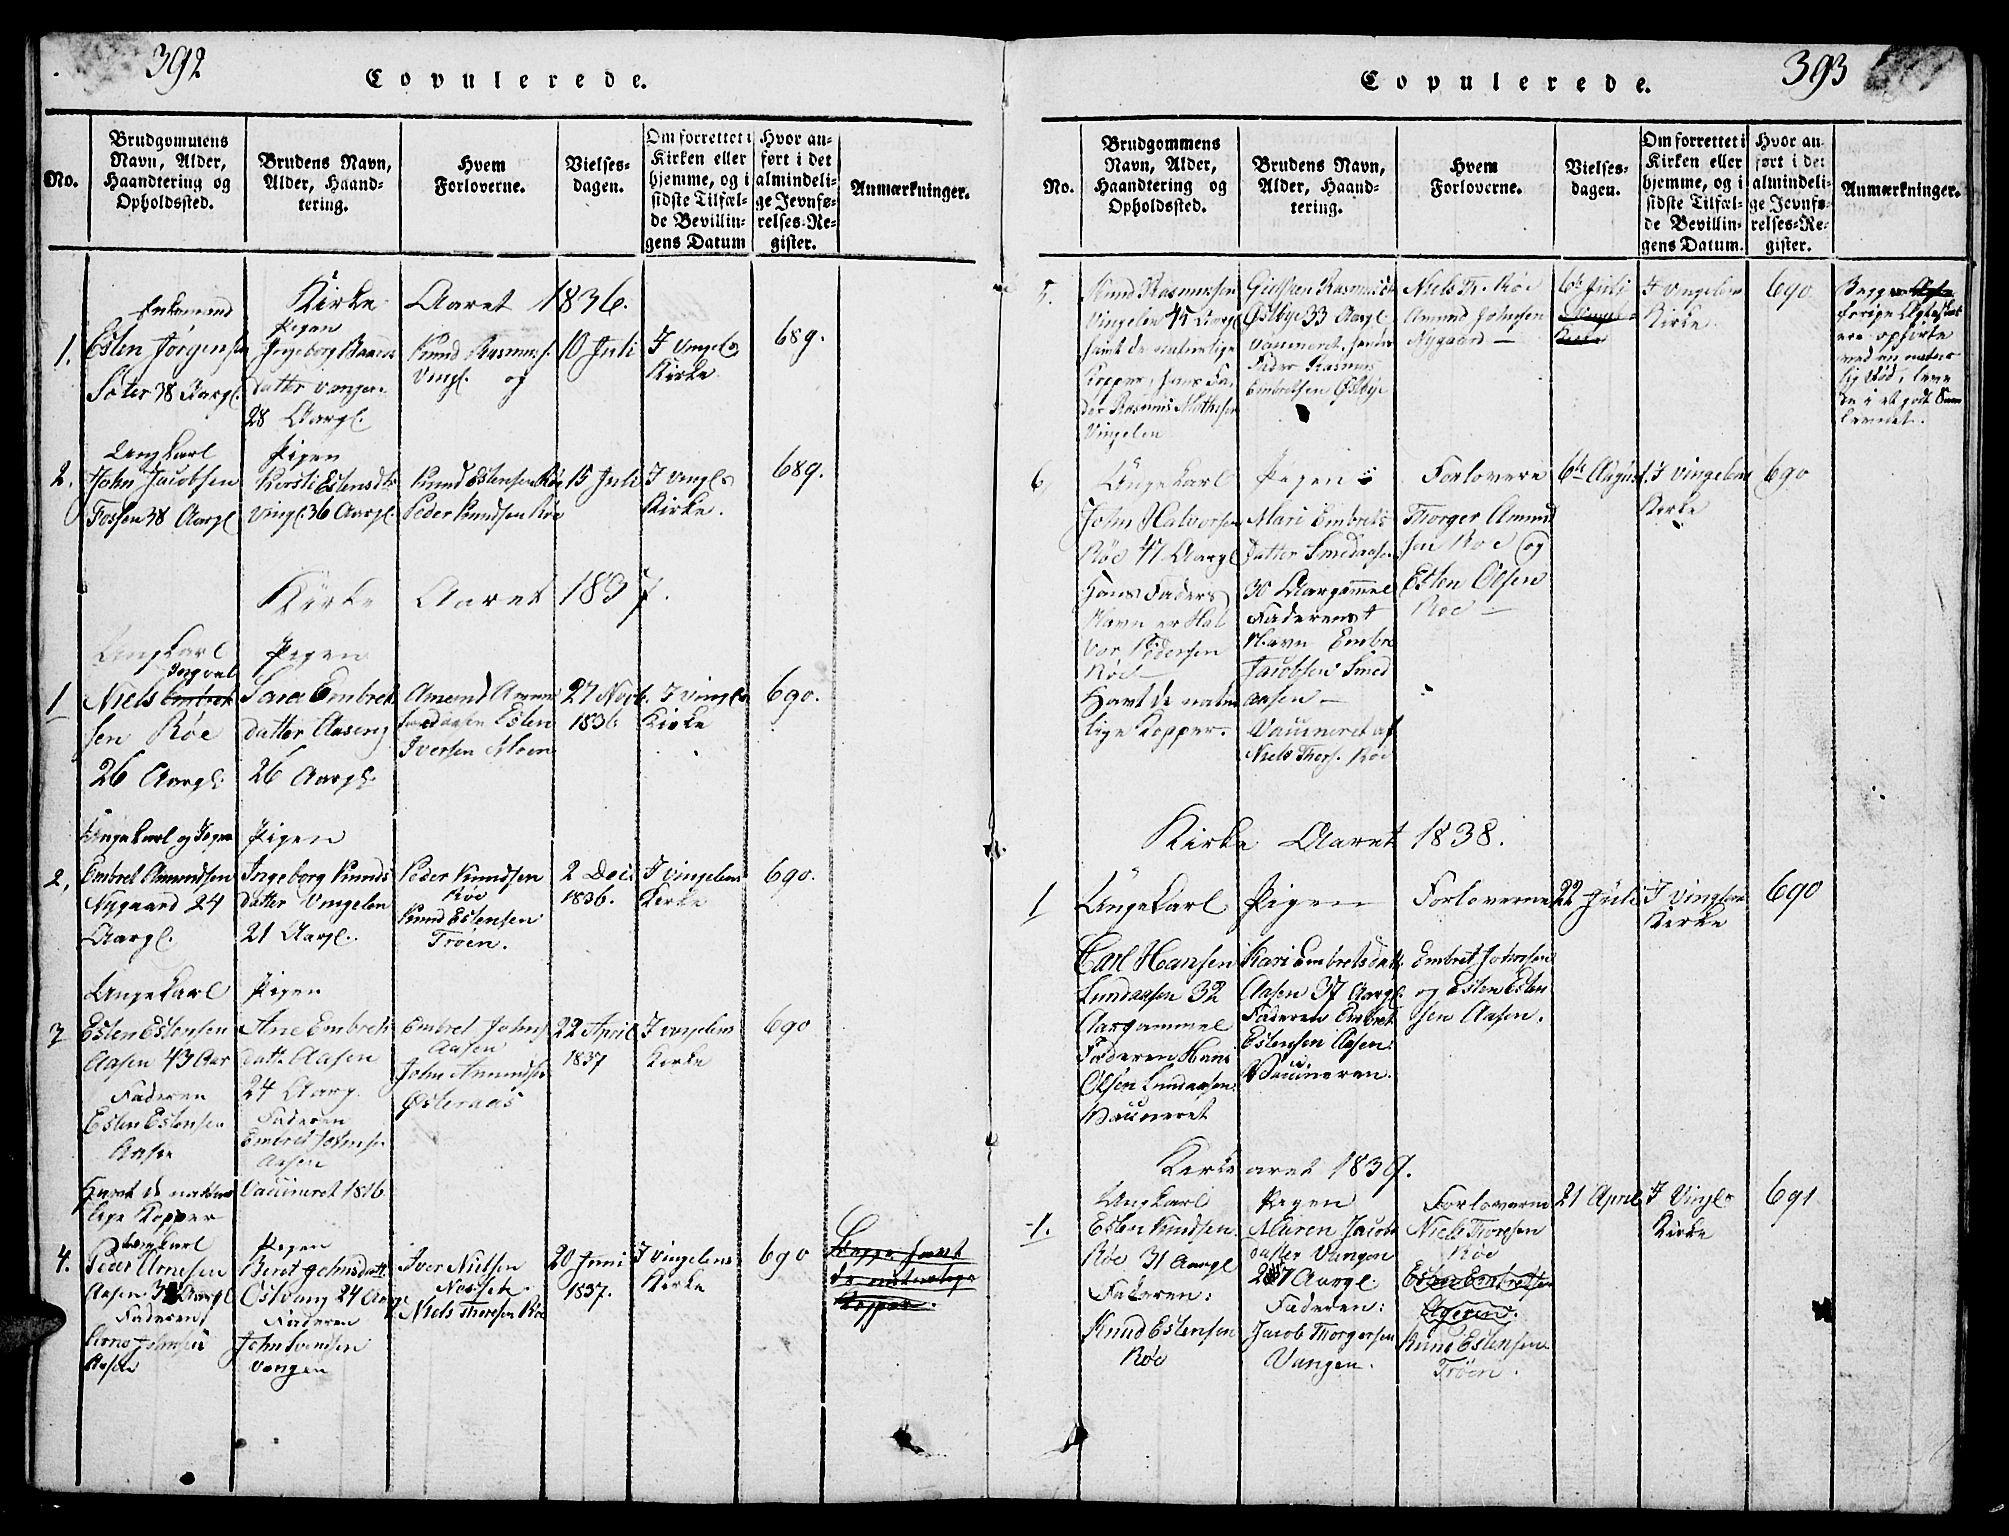 392
Copulerede.
No.
Brudgommens
Navn, Alder,
Haandtering og
Opholdssted.
Brudens Navn,
Alder, Haand-
tering.
Hvem
Forloverne.
Vielses-
dagen.
Om forrettet i
Kirken eller
hjemme, og i
sidste Tilfæl-
de Bevillin-
gens Datum
Hvor an-
ført i det
almindeli-
ge Jevnfø-
relses-Re-
gister.
Anmærkninger.
Kirke Aaret 1836.
Enkemand
1. Esten Jørgensen
38 Aargl.
Pigen
Ingeborg
datter Vangen
28 Aargl.
Knud Rasmuss.
Vingl. og
10 Juli
I Vingels
Kirke
689.
Ungkarl
2. John Jacobsen
Fossen 38 Aargl
Pigen
Kersti Estensdtr
Vingl. 36 Aargl.
Knud Estensen Røe
Peder Knudsen Røe
15 Juli
I Vingls
Kirke.
689.
Kirke Aaret 1837.
Ungkarl
Ingval
1 Niels Embret
sen Røe
26 Aargl.
Pigen
Sara Embret
datter Aaseng
26 Aargl.
Amund Amun
Esten
Iversen Moen
27 Novb.
1836
I Vingls
Kirke
690.
Ungekarl og Pigen
2. Embret Amundsen
Nygaard 24
Aargl.
Pigen
Ingeborg Knuds
datter Vingelen
21 Aargl.
Peder Knudsen
Røe
Knud Estensen
Trøen.
2 Dec.
1836.
I Vingelens
Kirke
690.
Ungekarl
3 Esten Estensen
Aasen 43 Aar
Faderen
Esten Estensen
Aasen
Havt de naturl
lige Kopper
Pigen
Ane Embrets
datt. Aasen
24 Aarg.
Faderen
Embret Johnsen
Aasen
Vaccineret 1816
Embret Johns
Aasen
John Amundsen
Østeraas
22 April
1837
I Vingelens
Kirke
690
Ungkarl
4. Peder Arnesen
Aasen 3 Aargl
Faderen
Arne Johnsen
Aasen
Pigen
Berit Johnsdatt
Østvang 24 Aarg
Faderen
John Svendsen
Vangen
Iver Nielsen
Niels Thoresen Røe
20 Juni
1837.
I Vingelens
Kirke
690
Begge havt
de naturlige
Kopper.
393
Copulerede.
No.
Brudgommens
Navn, Alder,
Haandtering og
Opholdssted.
Brudens Navn,
Alder, Haand-
tering.
Hvem
Forloverne.
Vielses-
dagen.
Om forrettet i
Kirken eller
hjemme, og i
sidste Tilfæl-
de Bevillin-
gens Datum.
Hvor an-
ført i det
almindeli-
ge Jevnfø-
relses-Re-
gister.
Anmærkninger.
5. Knud Rasmussen
Vingelen 45 Aargl
havt de naturlige
Kopper, hans Fa-
der Rasmus Mathesen
Vingelen
Østbye 33 Aargl.
Vaccineret, hendes
Fader Rasmus
Embretsen Østbye
Niels Th. Røe
Amund Johnsen
Nygaard —
6te Juli
I Vingelens
Kirke
690
6. Ungekarl
John Halvorsen
Røe 47 Aargl
Hans Faders
Navn er Hal
vor Pedersen
Røe
Havt de natur
lige Kopper.
Pigen
Mari Embrets
datter Smedaasen
30 Aargammel
Faderens
Navn Embre
Jacobsen Smed
aasen —
Vaccineret af
Niels Thors. Røe
Forlovere
Thorger Amund
sen Røe og
Esten Olsen
Røe —
6te August
I Vingelens
Kirke
690
Kirke Aaret 1838.
1 Ungekarl
Carl Hansen
Lundaasen 32
Aargammel
Faderen Hans
Olsen Lundaasen
Vaccineret
Pigen
Kari Embretsdatt.
Aasen 37 Aargl.
Faderen Embret
Estensen Aasen.
Vaccineren.
Forloverne
Embret Johnsen
og Esten Esten
sen Aasen.
22 Juli
I Vinglens
Kirke
690
Kirke aaret 1839.
1. Ungkarl
Esten Knudsen
Røe 31 Aargl
Faderen:
Knud Estensen
Røe
Pigen
Maren Jacobs
datter Vangen
27 Aargl.
Faderen:
Jacob Thorgersen
Vangen.
Forloverne
Niels Thoresen
Røe
Esten Embretsen
Knud Estensen
Trøen.
21 April
I Vingls
Kirke
691